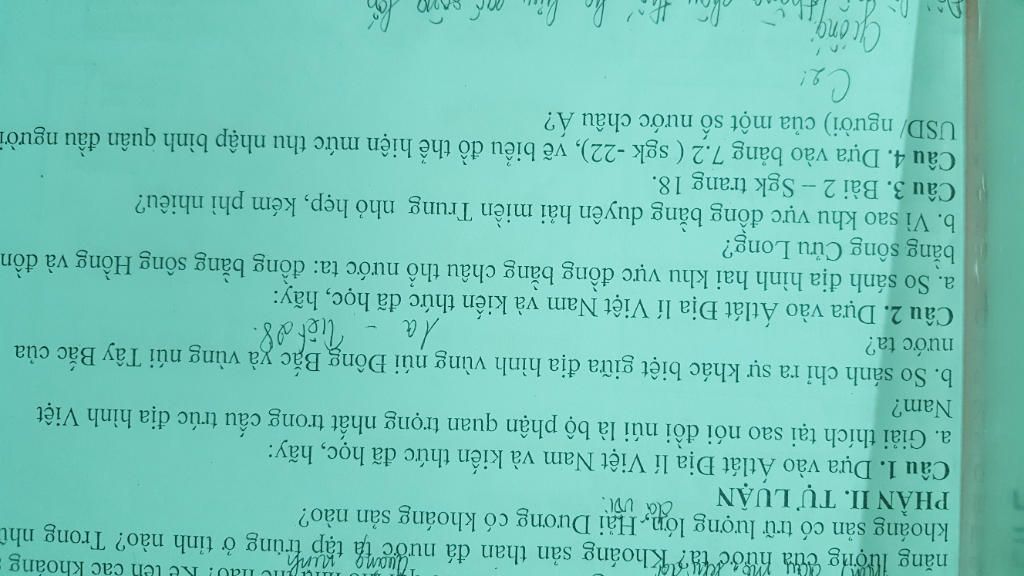 năng lượng của nước ta? Khoáng sản than đá nước ta tập trung ở tỉnh nào? Trong
khoáng sản có trữ lượng lớn, Hải Dương có khoáng sản nào?
PHẦN II. TỰ LUẬN
Câu 1. Dựa vào Átlát Địa lí Việt Nam và kiến thức đã học, hãy:
a. Giải thích tại sao nói đồi núi là bộ phận quan trọng nhất trong cấu trúc địa hình Việt
Nam?
b. So sánh chỉ ra sự khác biệt giữa địa hình vùng núi Đông Bắc và vùng núi Tây Bắc của
nước ta?
1a - Tiết 28.
Câu 2. Dựa vào Átlát Địa lí Việt Nam và kiến thức đã học, hãy:
a. So sánh địa hình hai khu vực đồng bằng châu thổ nước ta: đồng bằng sông Hồng và
bằng sông Cửu Long?
b. Vì sao khu vực đồng bằng duyên hải miền Trung nhỏ hẹp, kém phì nhiêu?
Câu 3. Bài 2 – Sgk trang 18.
Câu 4. Dựa vào bảng 7.2 ( sgk -22), vẽ biểu đồ thể hiện mức thu nhập bình quân đầu người
USD/ người) của một số nước châu Á?
C2:
Giống: